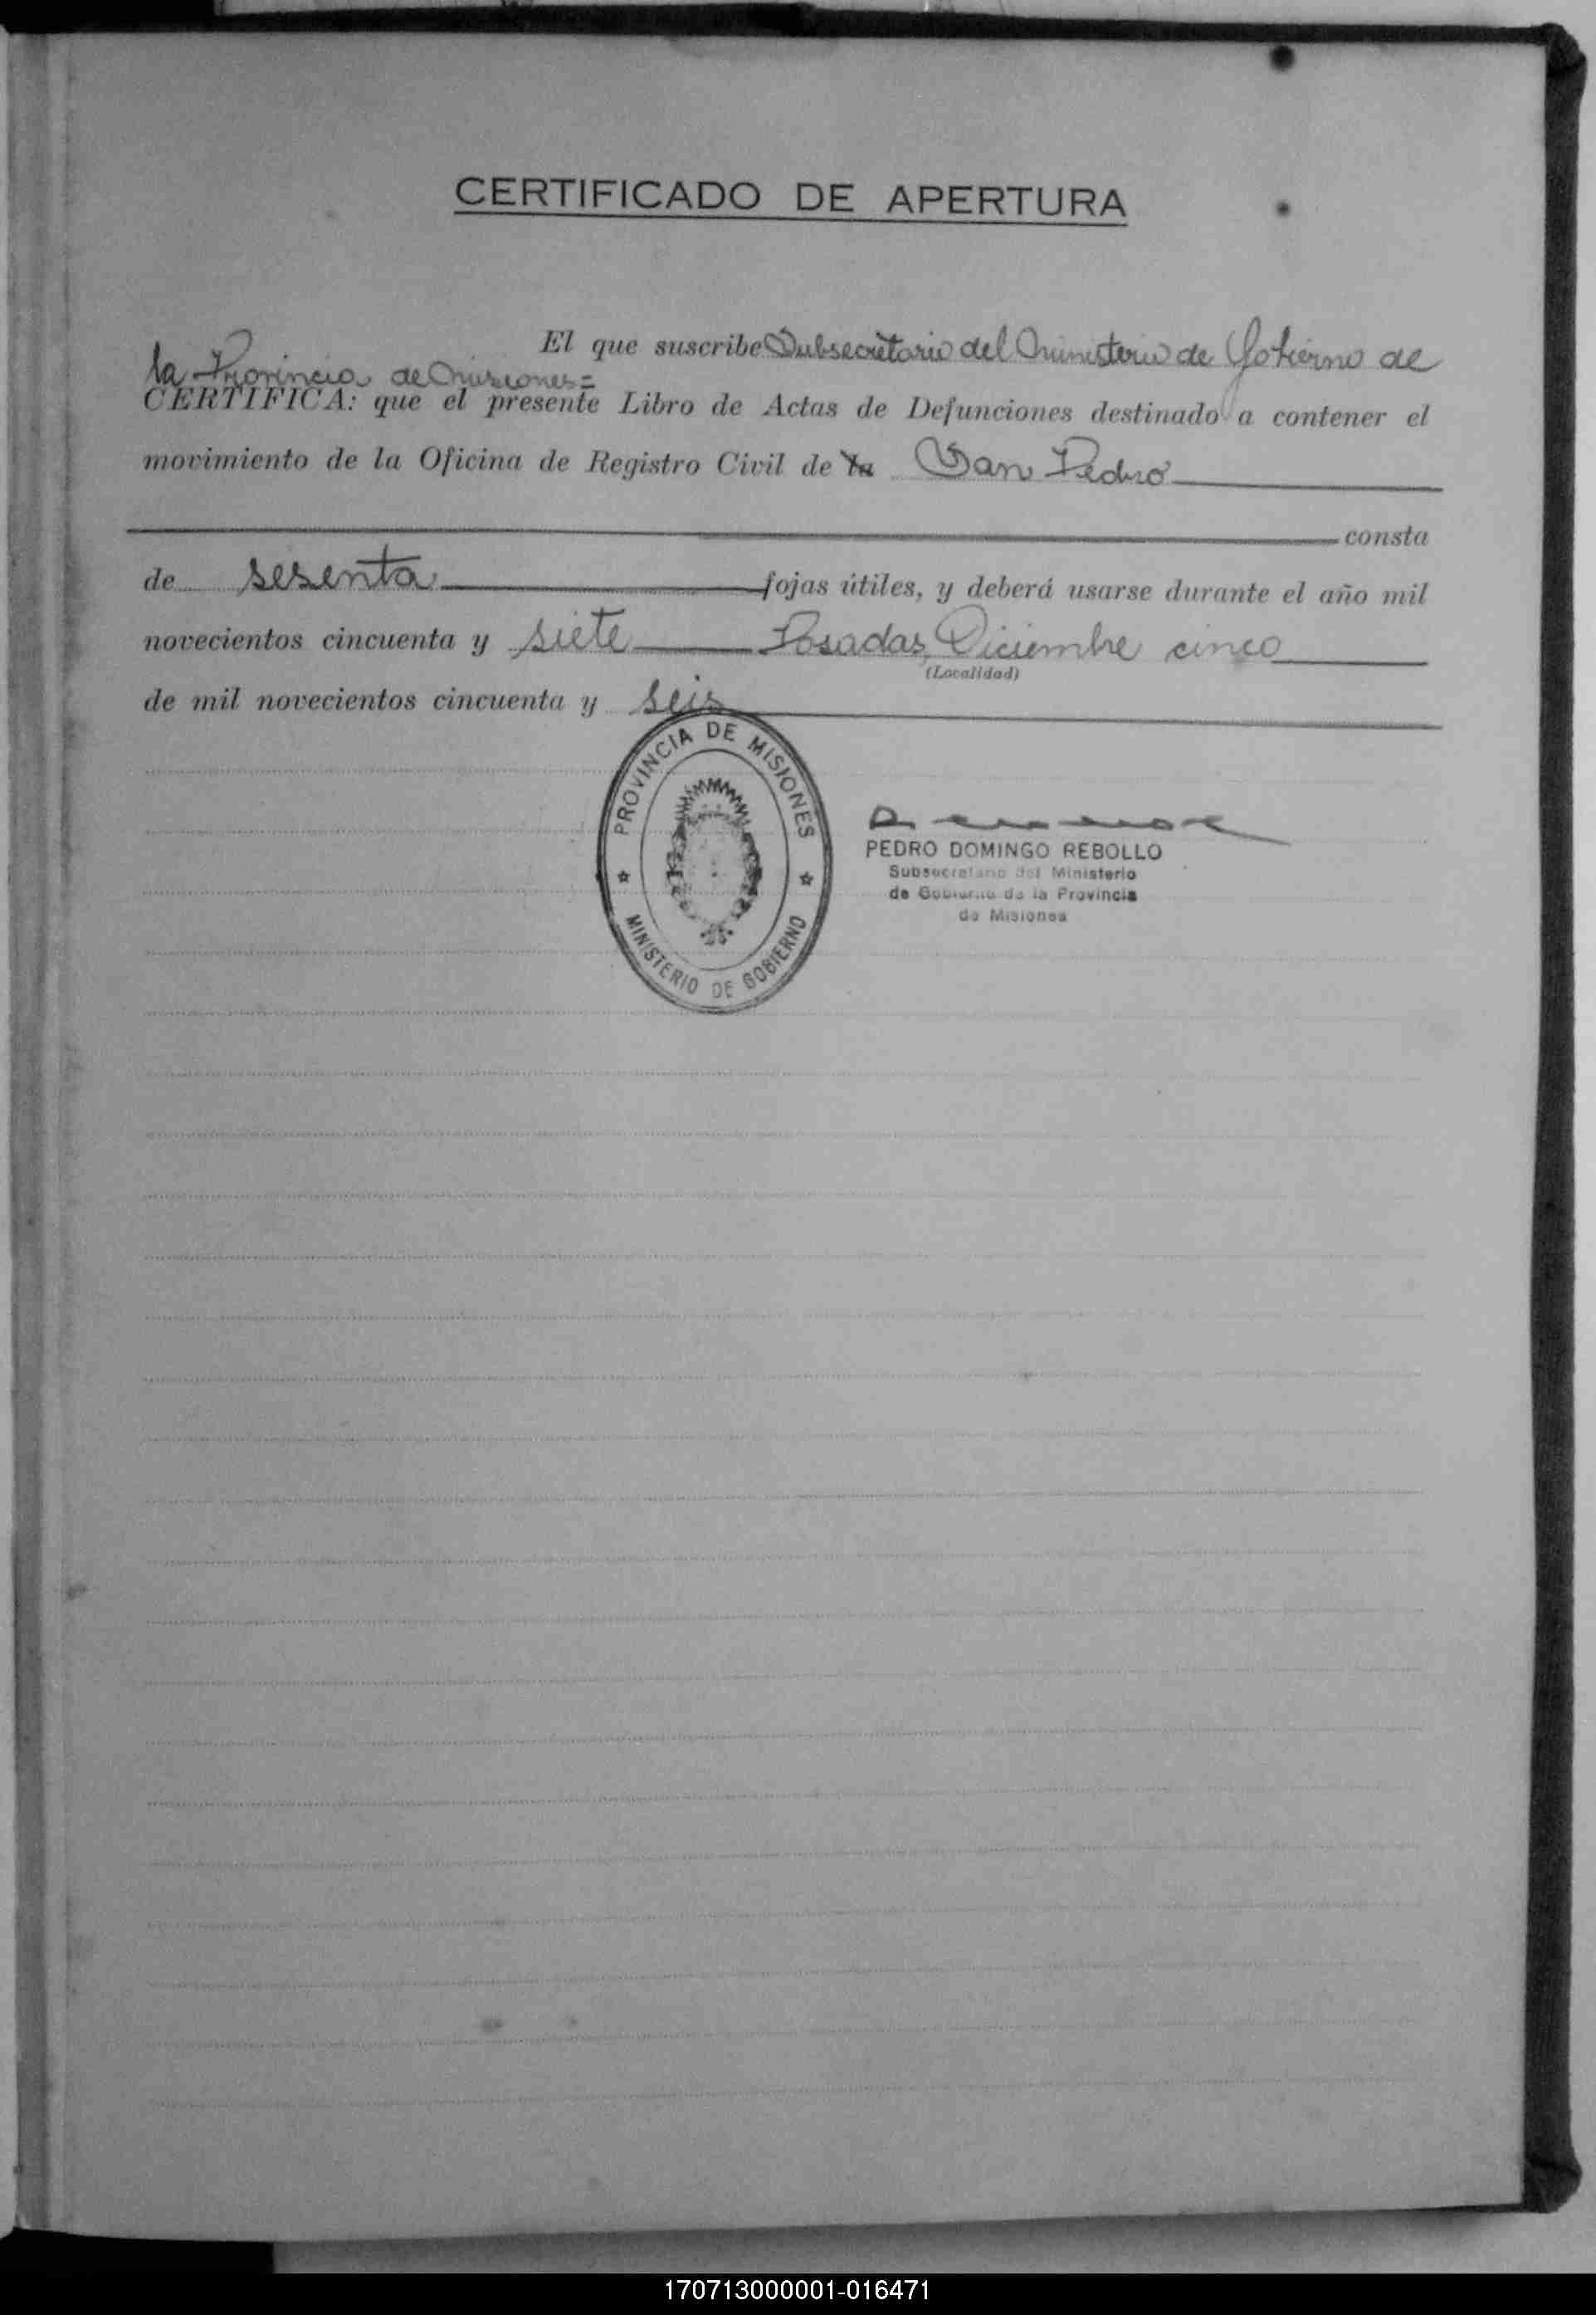 CERTIFICADO DE APERTURA
El que suscribe Subsecretario del Ministerio de Gobierno de
la Provincia de Misiones=
CERTIFICA: que el presente Libro de Actas de Defunciones destinado a contener el
movimiento de la Oficina de Registro Civil de la San Pedro
consta
de sesenta fojas útiles, y deberá usarse durante el año mil
novecientos cincuenta y siete Posadas, Diciembre cinco
(Localidad)
de mil novecientos cincuenta y seis
PROVINCIA DE MISIONES
MINISTERIO DE GOBIERNO
PEDRO DOMINGO REBOLLO
Subsecretario del Ministerio
de Gobierno de la Provincia
de Misiones
170713000001-016471